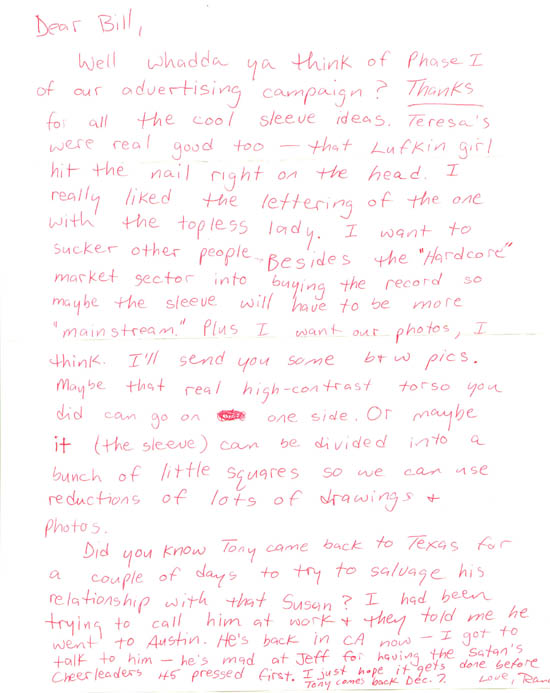 Dear Bill,
Well whadda ya think of Phase I
of our advertising campaign? Thanks
for all the cool sleeve ideas. Teresa's
were real good too — that Lufkin girl
hit the nail right on the head. I
really liked the lettering of the one
with the topless lady. I want to
sucker other people Besides the "Hardcore"
market sector into buying the record so
maybe the sleeve will have to be more
"mainstream." Plus I want our photos, I
think. I'll send you some b+w pics.
Maybe that real high-contrast torso you
did can go on one side. Or maybe
it (the sleeve) can be divided into a
bunch of little squares so we can use
reductions of lots of drawings +
photos.
Did you know Tony came back to Texas for
a couple of days to try to salvage his
relationship with that Susan? I had been
trying to call him at work + they told me he
went to Austin. He's back in CA now — I got to
talk to him — he's mad at Jeff for having the Satan's
Cheerleaders 45 pressed first. I just hope it gets done before
Tony comes back Dec. 2. Love,